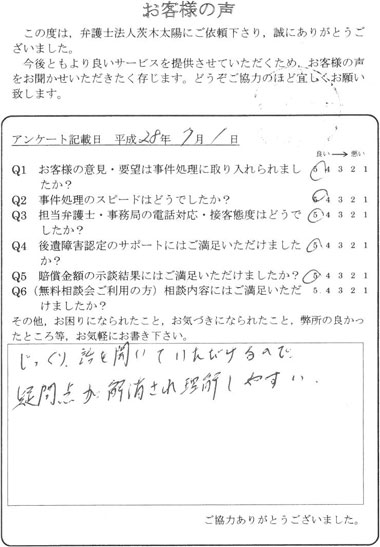 お客様の声
この度は、弁護士法人茨木太陽にご依頼下さり，誠にありがとうご
ざいました。
今後ともより良いサービスを提供させていただくため，お客様の声
をお聞かせいただきたく存じます。どうぞご協力のほど宜しくお願い
致します。
アンケート記載日 平成28年7月1日
良い → 悪い
Q1 お客様の意見・要望は事件処理に取り入れられまし 5 4 3 2 1
たか？
Q2 事件処理のスピードはどうでしたか？ 5 4 3 2 1
Q3 担当弁護士・事務局の電話対応・接客態度はどうで 5 4 3 2 1
したか？
Q4 後遺障害認定のサポートにはご満足いただけました 5 4 3 2 1
か？
Q5 賠償金額の示談結果にはご満足いただけましたか？ 5 4 3 2 1
Q6（無料相談会ご利用の方）相談内容にはご満足いただ 5 4 3 2 1
けましたか？
その他，お困りになられたこと，お気づきになられたこと，弊所の良かっ
たところ等，お気軽にお書き下さい。
じっくり、話を聞いていただけるので
疑問点が解消され理解しやすい.
ご協力ありがとうございました。